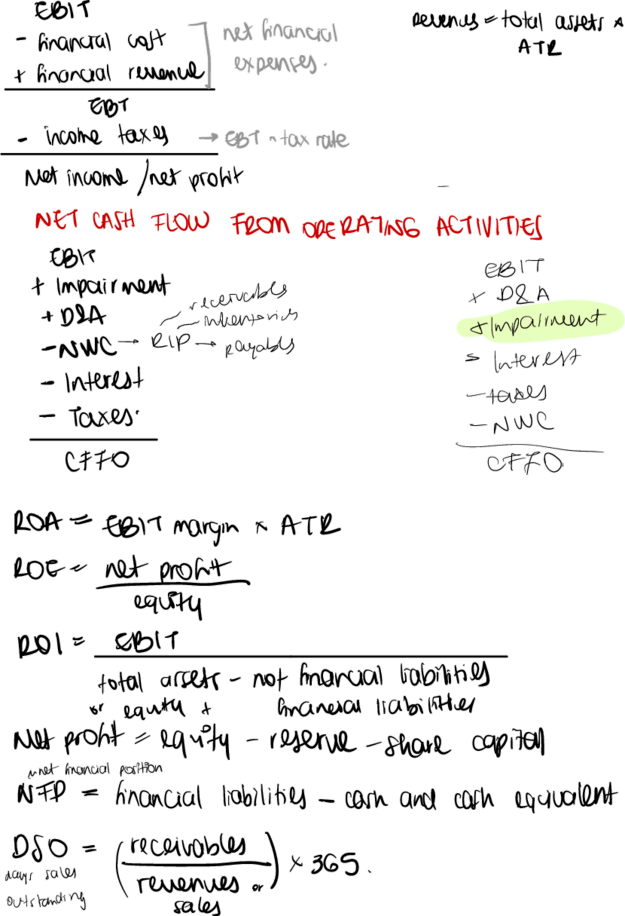 EBIT
- financial cost
+ financial revenue
net financial
expenses.
revenues = total assets x
ATR
EBT
- income taxes → EBT × tax rate
Net income / net profit
NET CASH FLOW FROM OPERATING ACTIVITIES
EBIT
+ Impairment
+ D&A
- NWC → RIP → payables
receivables
inventories
- Interest
- Taxes.
CFFO
EBIT
+ D&A
+ Impairment
- Interest
- taxes
- NWC
CFFO
ROA = EBIT margin x ATR
ROE = net profit
equity
ROI = EBIT
total assets - not financial liabilities
or equity + financial liabilities
Net profit = equity - reserve - share capital
net financial position
NFP = financial liabilities - cash and cash equivalent
DSO = (receivables / revenues or sales) × 365.
days sales
outstanding